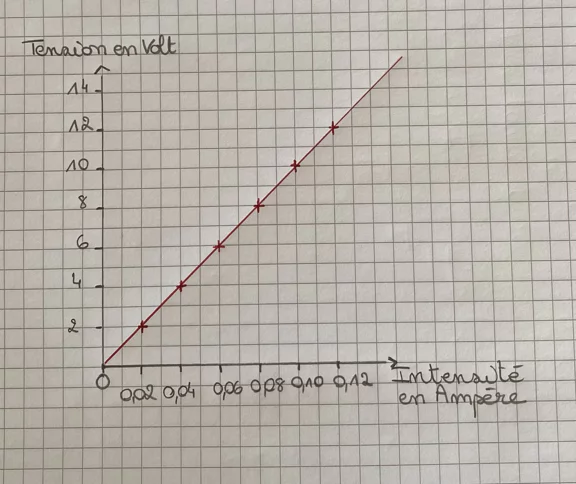 Tension en Volt
14
12
10
8
6
4
2
0
0,02 0,04 0,06 0,08 0,10 0,12
Intensité
en Ampère